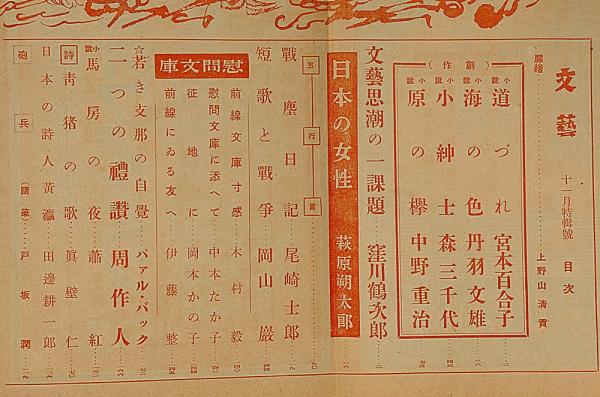 文藝 十一月特輯號 目次
扉繪 上野山清貢
(創作)
小說 道づれ 宮本百合子
小說 海の色 丹羽文雄
小紳士 森三千代
小說 原の欅 中野重治
文藝思潮の一課題 窪川鶴次郎
日本の女性 萩原朔太郎
五行言
戰塵日記 尾崎士郎
短歌と戰爭 岡山巖
慰問文庫
前線文庫寸感 木村毅
慰問文庫に添へて 中本たか子
征地に 岡本かの子
前線にゐる友へ 伊藤整
☆若き支那の自覺 パアル・バック
二つの禮讚 周作人
小說 馬房の夜 蕭紅
詩 靑猪の歌 眞壁仁
日本の詩人黃瀛 田邊耕一郎
砲兵(隨筆) 戸坂潤